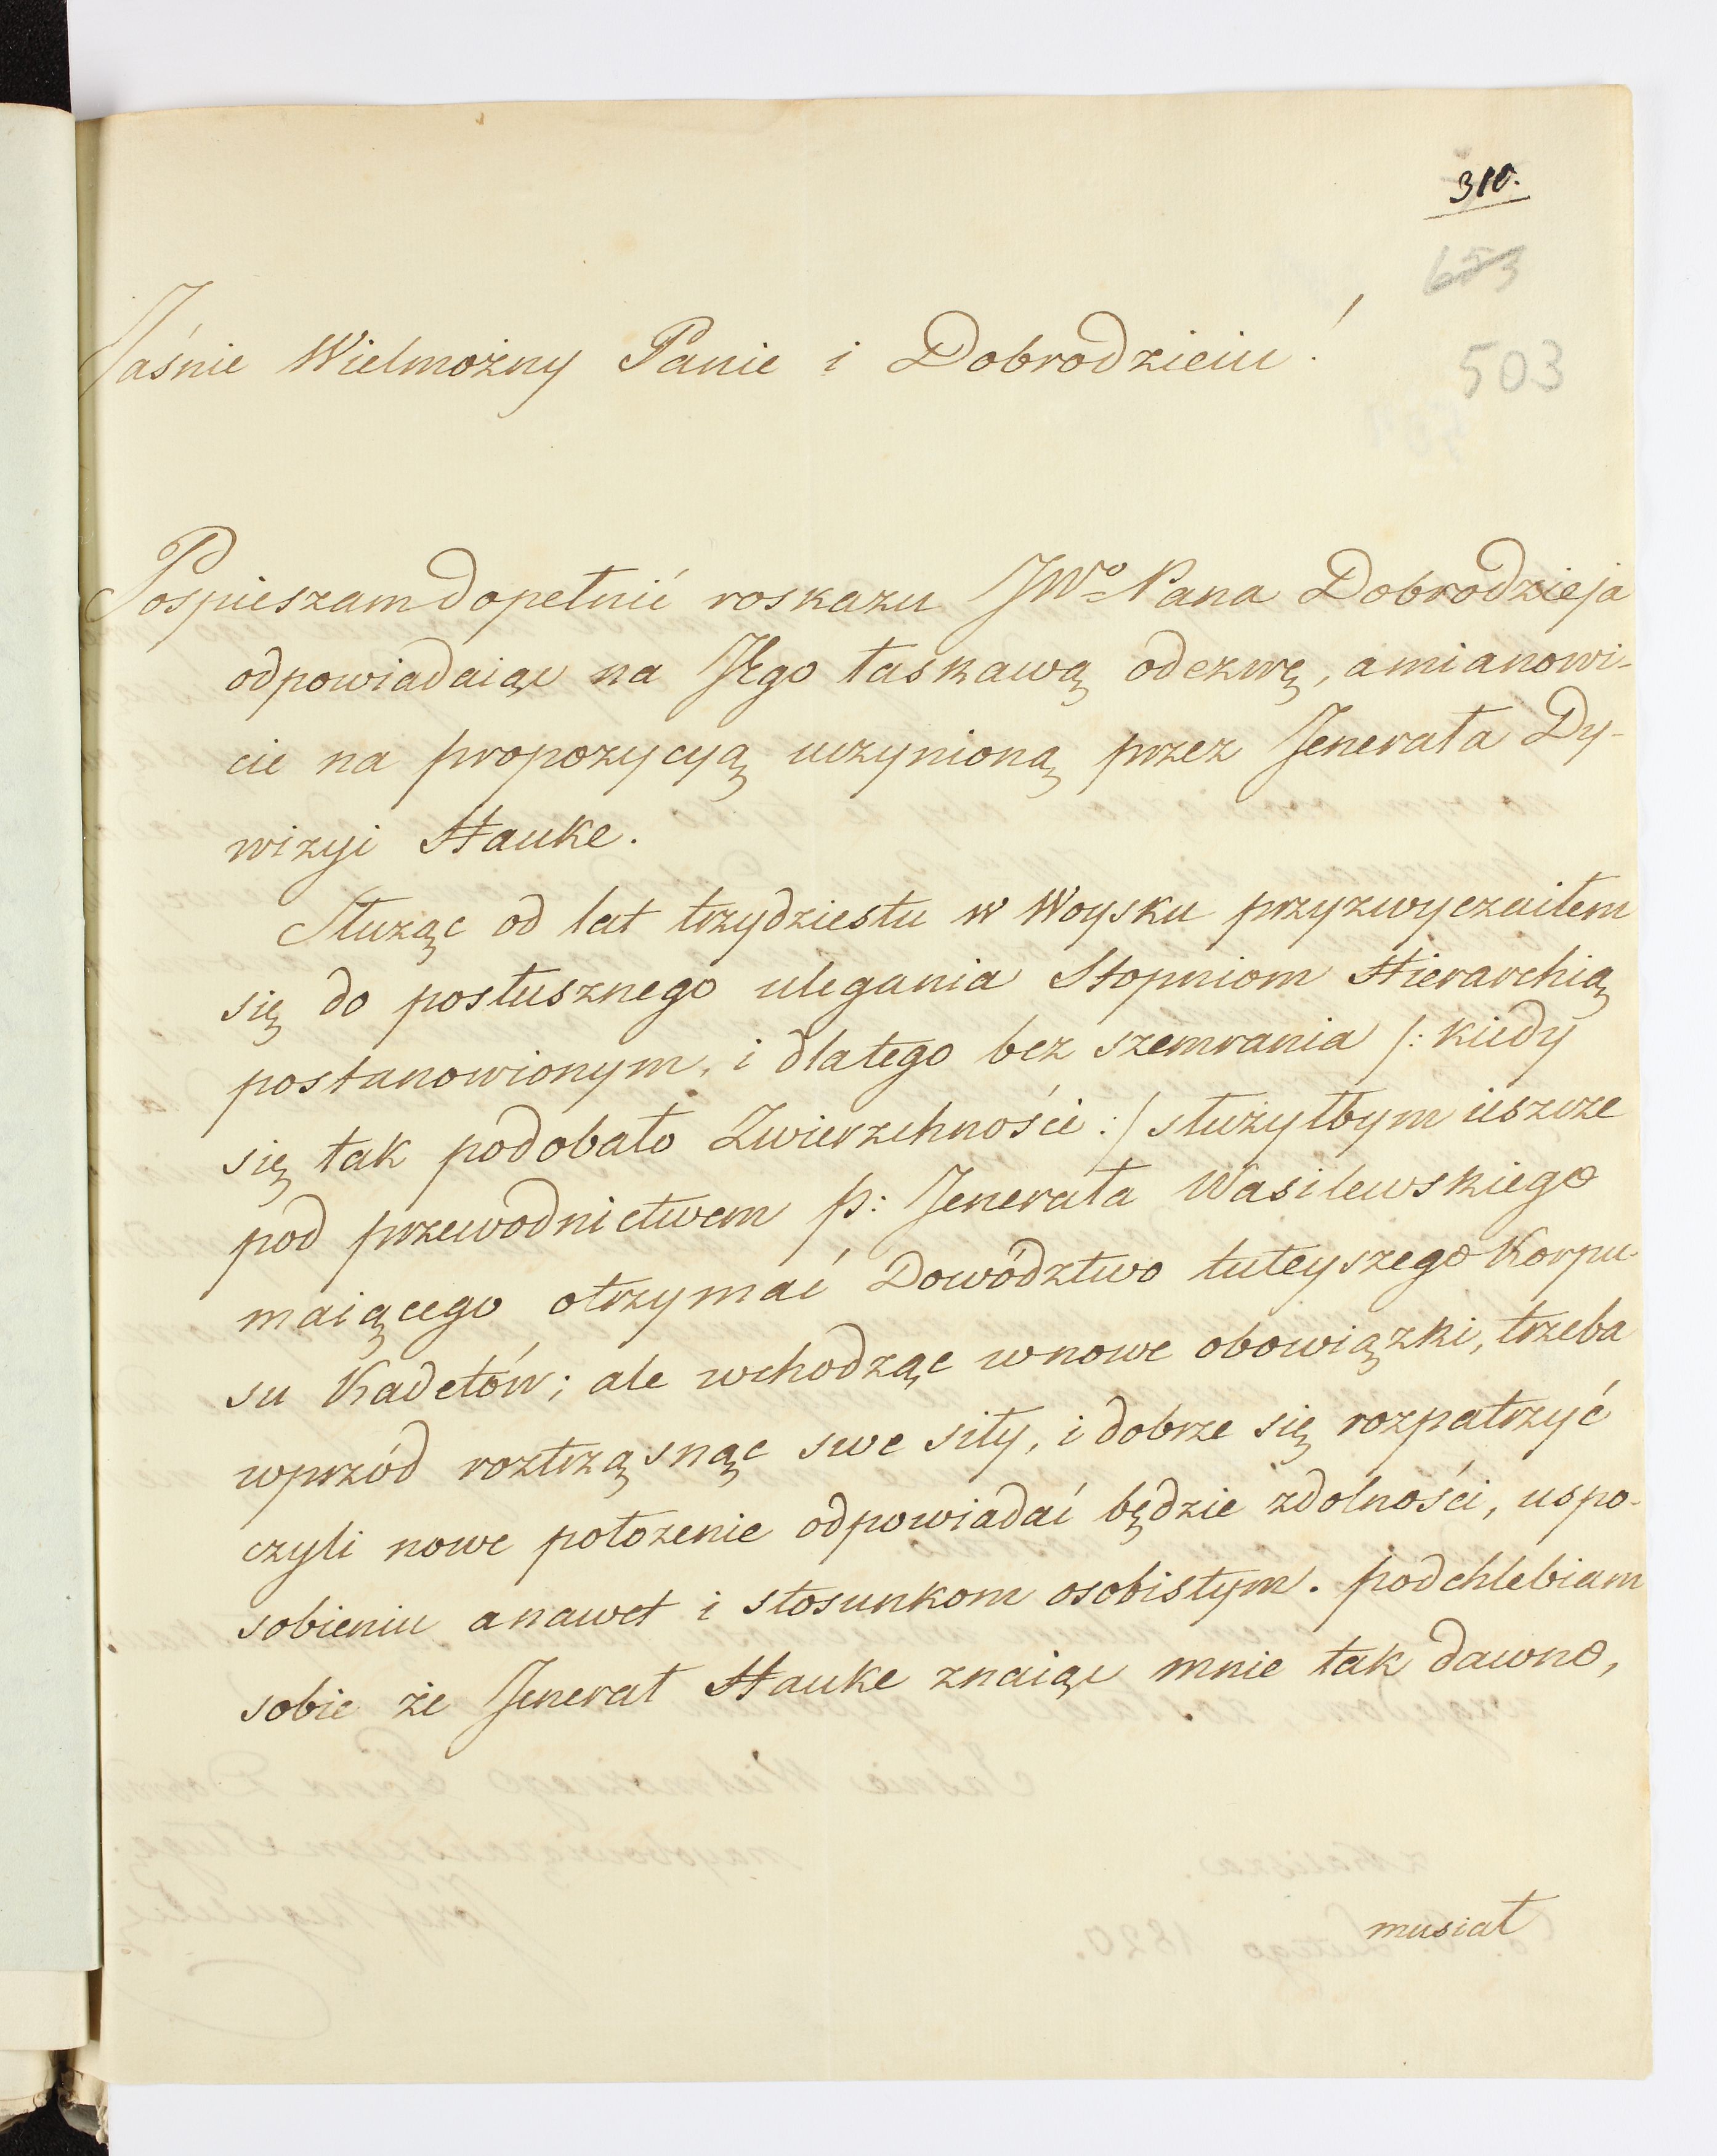 310.
653
503
Jaśnie Wielmożny Panie i Dobrodzieiu!
Pospieszam dopełnić roskazu JWo Pana Dobrodzieja
odpowiadaiąc na JEgo łaskawą odezwę, amianowi-
cie na propozycyą uczynioną przez Jenerała Dy-
wizyi Hauke.
Służąc od lat trzydziestu w Woysku przyzwyczaiłem
się do posłusznego ulegania Stopniom Hierarchią
postanowionym, i dlatego bez szemrania /: kiedy
się tak podobało Zwierzchności :/ służyłbym ieszcze
pod przewodnictwem p: Jenerała Wasilewskiego
maiącego otrzymać Dowództwo tuteyszego Korpu-
su Kadetów; ale wchodząc wnowe obowiązki, trzeba
wprzód roztrząsnąc swe siły, i dobrze się rozpatrzyć
czyli nowe położenie odpowiadać będzie zdolności, uspo-
sobieniu anawet i stosunkom osobistym. podchlebiam
sobie że Jenerał Hauke znaiąc mnie tak dawno,
musiał